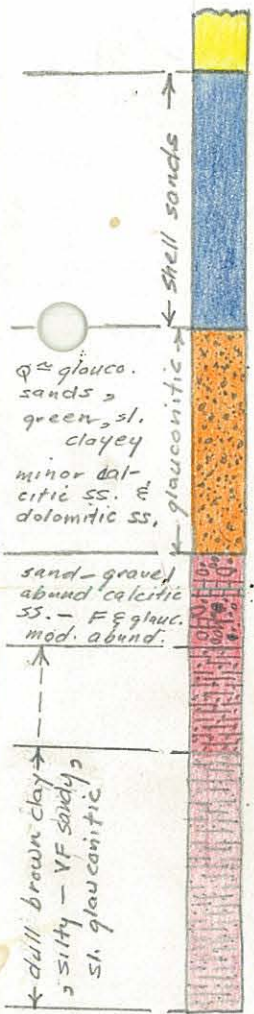 shell sands
Q ≈ glauco.
sands,
green, sl.
clayey
minor cal-
citic ss. &
dolomitic ss.
glauconitic
sand-gravel
abund calcitic
ss. - F & glauc.
mod. abund.
dull brown clay,
silty - VF sandy,
sl. glauconitic